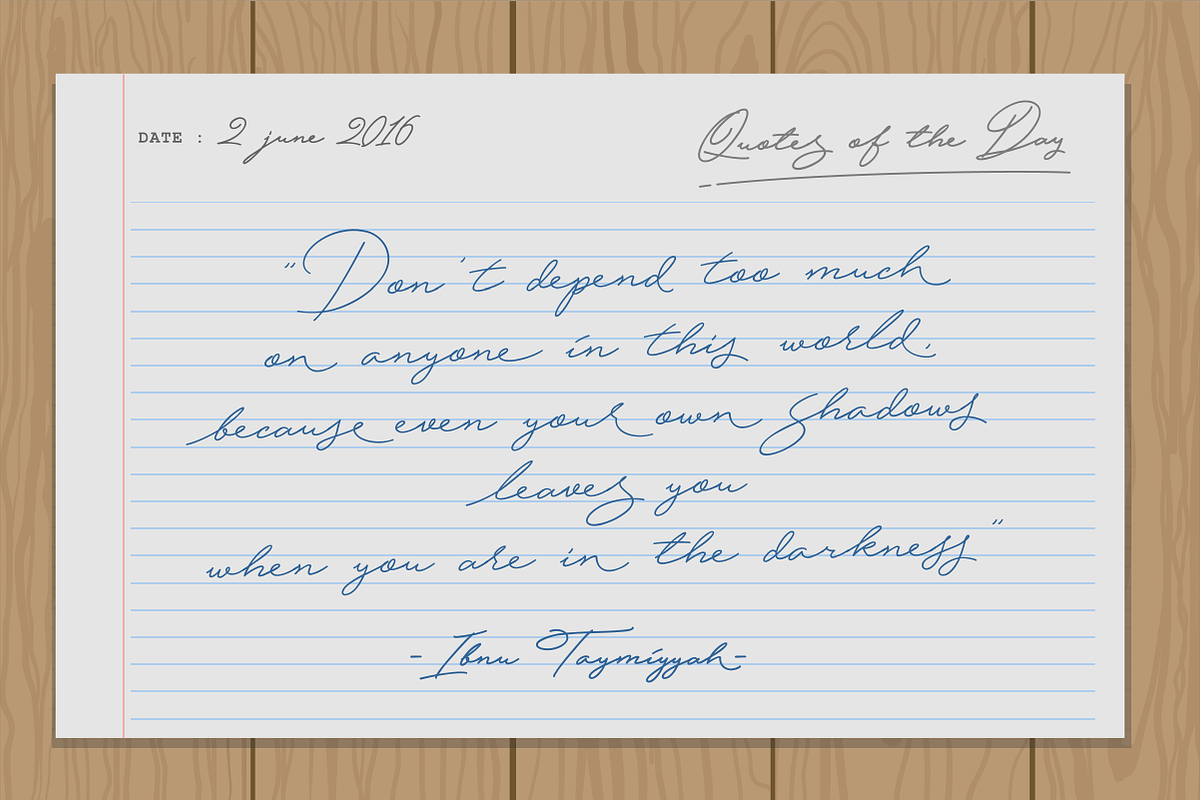 DATE : 2 june 2016
Quotes of the Day
"Don't depend too much
on anyone in this world.
because even your own shadows
leaves you
when you are in the darkness"
-Ibnu Taymiyyah-